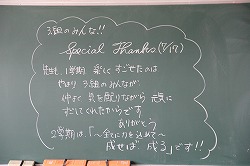 3組のみんな!!
Special Thanks (7/17)
先生も 1学期 楽しく すごせたのは
やはり 3組のみんなが
仲よく 気を配りながら 元気に
すごしてくれたからです
ありがとう
2学期は、「〜全てに力を込めて〜
成せば 成る」です!!